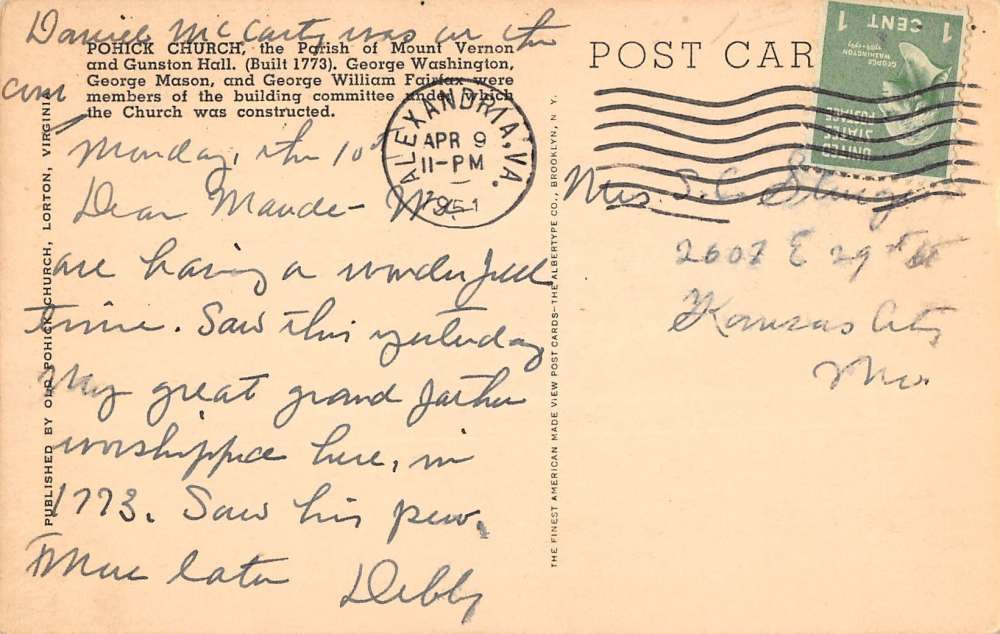 Daniel McCarty was on the
com
POHICK CHURCH, the Parish of Mount Vernon
and Gunston Hall. (Built 1773). George Washington,
George Mason, and George William Fairfax were
members of the building committee under which
the Church was constructed.
Monday, the 10th
Dear Maude - We
are having a wonderful
time. Saw this yesterday
My great grand father
worshipped here, in
1773. Saw his pew.
More later Debby
PUBLISHED BY OLD POHICK CHURCH, LORTON, VIRGINIA
ALEXANDRIA, VA.
APR 9
11-PM
1951
THE FINEST AMERICAN MADE VIEW POST CARDS—THE ALBERTYPE CO., BROOKLYN, N. Y.
POST CAR
1 CENT 1
GEORGE WASHINGTON
UNITED STATES POSTAGE
Mrs. S. C.
2607 E 29th St
Kansas City
Mo.